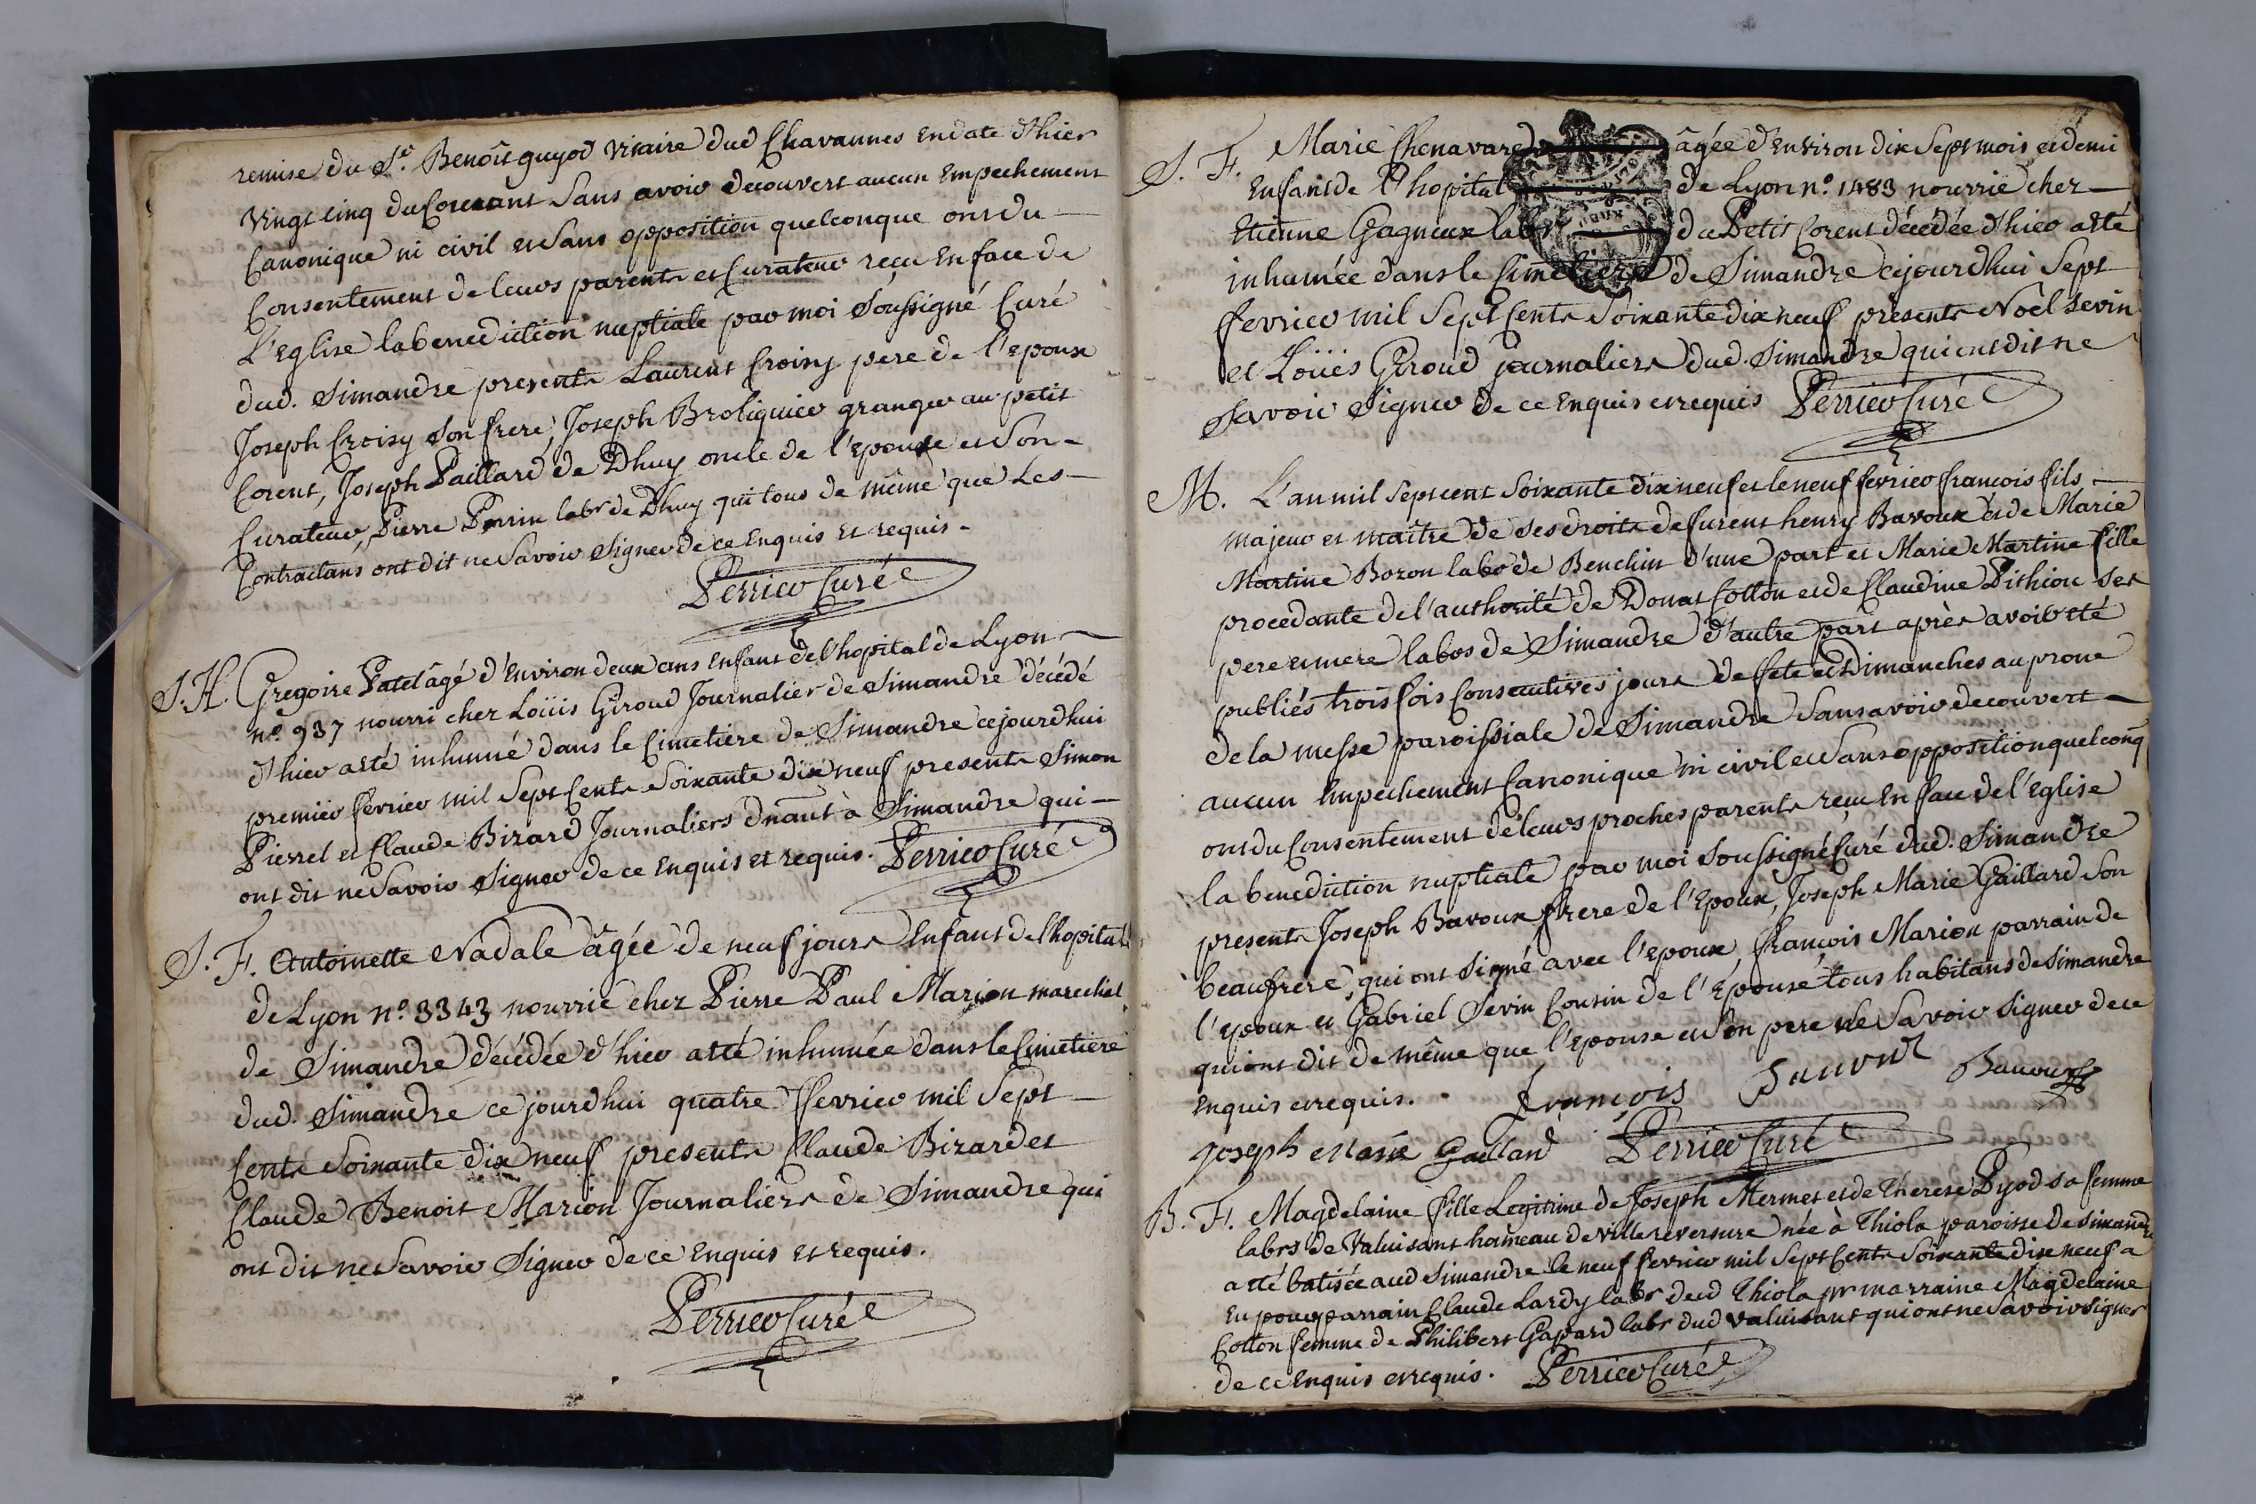 remise du Sr. Benoît guyod vicaire dud Chavannes en date d'hier
vingt cinq du Courant Sans avoir decouvert aucun Empechement
Canonique ni civil et Sans opposition quelconque ont du
Consentement de leurs parents et Curateur reçu En face de
L'Eglise la benediction nuptiale par moi Soussigné Curé
dud. Simandre presents Laurent Croisy pere de l'epoux
Joseph Croisy Son frere, Joseph Broliquier granger au petit
Corent, Joseph Paillard de Dhuy oncle de l'epouse et Son
Curateur, Pierre Perrin labr de Dhuy qui tous de même que Les
Contractans ont dit ne Savoir Signer de ce Enquis Et requis.
Perrier Curé
S. H. Gregoire Patel âgé d'Environ deux ans Enfant de l'hopital de Lyon
n.o 937 nourri chez Loüis Giroud Journalier de Simandre décédé
d'hier a Eté inhumé dans le Cimetiere de Simandre cejourdhui
premier fevrier mil Sept Cents Soixante dix neuf presents Simon
Pierrel et Claude Bizard Journaliers dnant à Simandre qui
ont dit ne Savoir Signer de ce Enquis et requis. Perrier Curé
S. F. Antoinette Nadale âgée de neuf jours Enfant de lhopital
de Lyon n.o 3343 nourrie chez Pierre Paul Marion marechal
de Simandre décédée d'hier a Eté inhumée dans le Cimetiere
dud. Simandre ce jourdhui quatre fevrier mil Sept
Cents Soixante dix neuf presents Claude Bizard et
Claude Benoit Marion Journaliers de Simandre qui
ont dit ne Savoir Signer de ce Enquis Et requis.
Perrier Curé
S. F. Marie Chenavard âgée d'Environ dix Sept mois et demi
Enfant de l'hopital de Lyon n.o 1483 nourrie chez
Etienne Gagneux labr du Petit Corent décédée d'hier a Eté
inhumée dans le Cimetiere de Simandre cejourdhui Sept
fevrier mil Sept Cents Soixante dix neuf presents Noël Sevin
et Loüis Giroud journaliers dud. Simandre qui ont dit ne
Savoir Signer de ce Enquis et requis Perrier Curé
M. L'an mil Sept cent Soixante dix neuf et le neuf fevrier françois fils
majeur et maître de Ses droits de furent henry Bavoux et de Marie
Martine Bozon labos de Benchin d'une part et Marie Martine fille
procedante de l'authorité de Donat Cotton et de Claudine Pithiou Ses
pere et mere labos de Simandre d'autre part après avoir Eté
publiés trois fois Consecutives jours de fete et Dimanches au prone
de la messe paroissiale de Simandre Sans avoir decouvert
aucun Empechement Canonique ni civil et Sans opposition quelconq
ont du Consentement de leurs proches parents reçu En face de l'Eglise
la benediction nuptiale par moi Soussigné Curé dud. Simandre
presents Joseph Bavoux frere de l'Epoux, Joseph Marie Gaillard Son
beaufrere, qui ont Signé avec l'epoux, françois Marion parrain de
l'epoux et Gabriel Sevin Cousin de l'Epouse tous habitans de Simandre
qui ont dit de même que l'Epouse et Son pere ne Savoir Signer de ce
Enquis et requis. François Bauvou Bavoux
joseph marie Gaillard Perrier Curé
B. F. Magdelaine fille Legitime de Joseph Mermet et de Therese Pyod Sa femme
labrs de Valuisant hameau de Villereversure née à Thiola paroisse de Simandre
a été batisée aud Simandre le neuf fevrier mil Sept Cents Soixante dix neuf a
Eu pour parrain Claude Lardy labr dud Thiola pr marraine Magdelaine
Cotton femme de Philibert Gapard labr dud valuisant qui ont ne Savoir Signer
de ce Enquis et requis. Perrier Curé